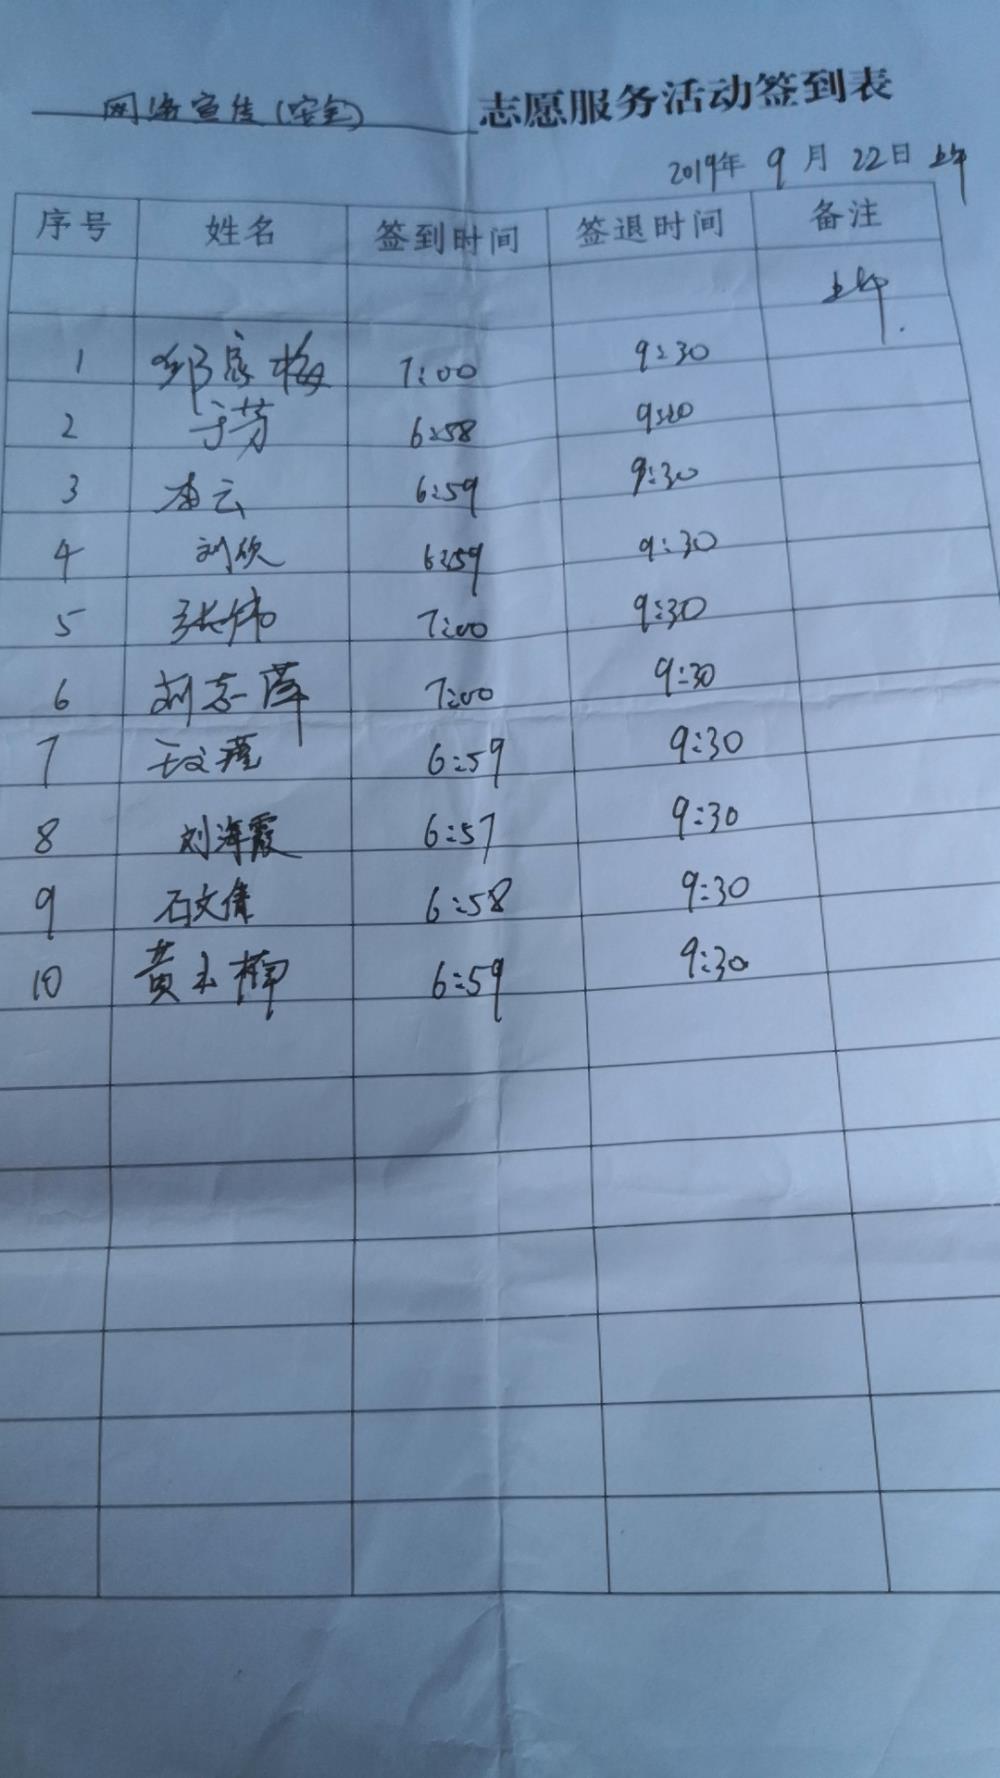 网络宣传(安全) 志愿服务活动签到表
2019年 9月 22日 上午
序号 姓名 签到时间 签退时间 备注
上午.
1 邹家梅 7:00 9:30
2 于芳 6:58 9:20
3 李云 6:59 9:30
4 刘欣 6:59 9:30
5 张炜 7:00 9:30
6 刘志萍 7:00 9:30
7 6:59 9:30
8 刘海霞 6:57 9:30
9 石文倩 6:58 9:30
10 黄玉楠 6:59 9:30